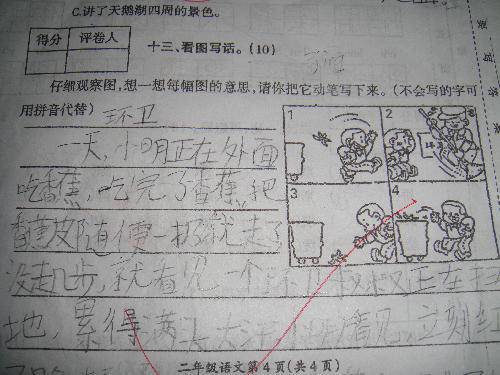 C.讲了天鹅湖四周的景色。
得分 评卷人
十三、看图写话。(10)
仔细观察图,想一想每幅图的意思,请你把它动笔写下来。(不会写的字可
用拼音代替) 环卫
1 2
一天,小明正在外面
吃香蕉,吃完了香蕉,把
3 4
香蕉皮随便一扔就走了
没走几步,就看见一个环卫叔叔正在扫
地,累得满头大汗 看见,立刻
二年级语文第4页(共4页)